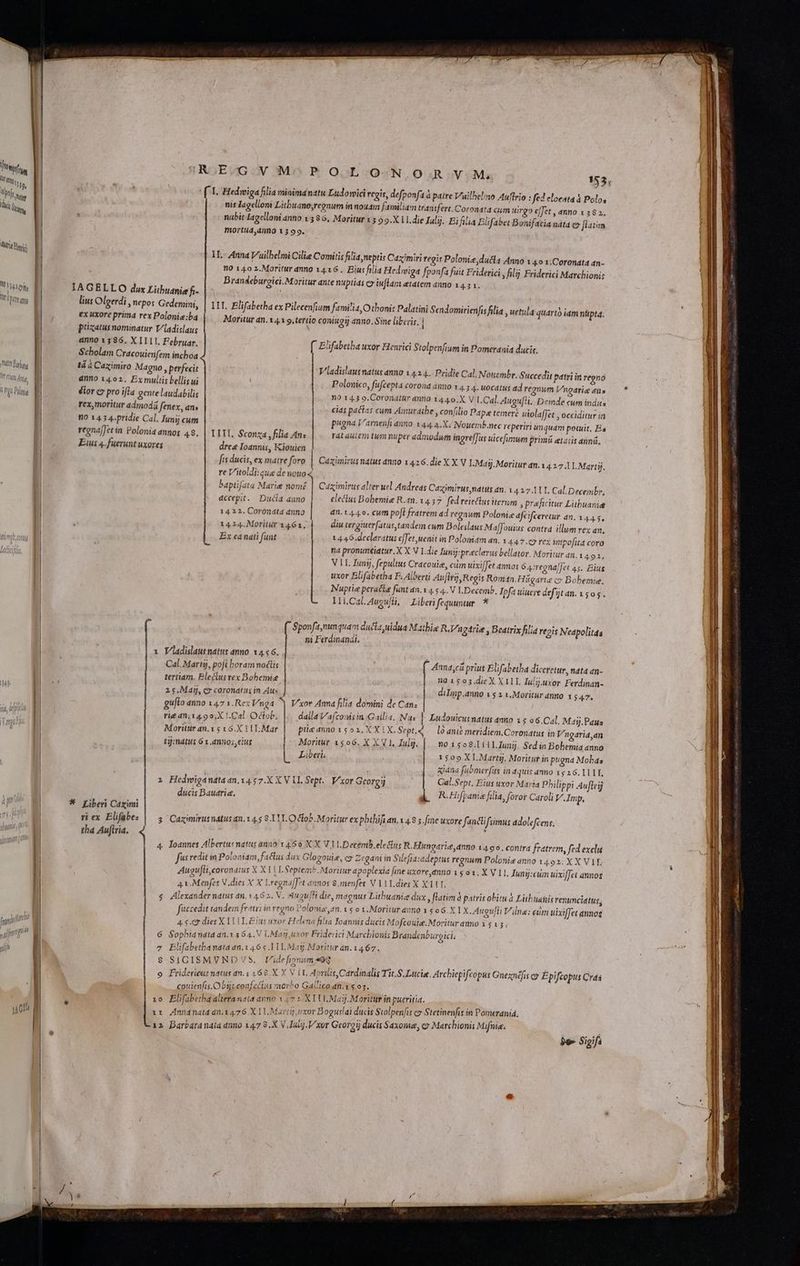 REGVM POLONORVM. 153.
IAGELLO dux Lithuaniæ fi-
lius Olgerdi, nepos Gedemini,
ex uxore prima rex Poloniæ: ba
ptizatus nominatur Vladislaus
anno 1386. XIIII. Februar.
Scholam Cracouiensem inchoa
tã à Cazimiro Magno, perfecit
anno 1402. Ex multis bellis ui
ctor & pro ista gente laudabilis
rex, moritur admodũ senex, an=
no 1434. pridie Cal. Iunij cum
regnasset in Polonia annos 48.
Eius 4. fuerunt uxores
I. Hedwiga filia minima natu Ludowici regis, desponsa à patre Vuilhelmo Austrio: sed elocata à Polo=
nis Iagelloni Lithuano, regnum in nouam familiam transfert. Coronata cum uirgo esset, anno 1382.
nubit Iagelloni anno 1386. Moritur 1399. XVI. die Iulij. Ei filia Elisabet Bonifacia nata & statim
mortua, anno 1399.
II. Anna Vuilhelmi Ciliæ Comitis filia, neptis Cazimiri regis Poloniæ, ducta Anno 1401. Coronata an-
no 1402. Moritur anno 1416. Eius filia Hedwiga sponsa fuit Friderici, filij Friderici Marchionis
Brandeburgici. Moritur ante nuptias & iustam ætatem anno 1431.
III. Elisabetha ex Pilecensium familia, Othonis Palatini Sendomiriensis filia, uetula quartò iam nupta.
Moritur an. 1419. tertio coniugij anno. Sine liberis.
IIII. Sconza, filia An=
dreæ Ioannis, Kiouien
sis ducis, ex matre soro
re Vitoldi: quæ de nouo
baptisata Mariæ nomẽ
accepit. Ducta anno
1422. Coronata anno
1424. Moritur 1461.
Ex ea nati sunt
Elisabetha uxor Henrici Stolpensium in Pomerania ducis.
Vladislaus natus anno 1424. Pridie Cal. Nouembr. Succedit patri in regno
Polonico, suscepta corona anno 1434. uocatus ad regnum Vngariæ an=
no 1439. Coronatur anno 1440. XVI. Cal. Augusti. Deinde cum indu=
cias pactas cum Amurathe, consilio Papæ temerè uiolasset, occiditur in
pugna Varnensi anno 1444. X. Nouemb. nec reperiri unquam potuit. Ba
rat autem tum nuper admodum ingressus uicesimum primũ ætatis annũ.
Cazimirus natus anno 1426. die XXVI. Maij. Moritur an. 1427. II. Martij.
Cazimirus alter uel Andreas Cazimirus, natus an. 1427. III. Cal. Decembr.
electus Bohemiæ R. an. 1437. sed reiectus iterum, præficitur Lithuaniæ
an. 1440. cum post fratrem ad regnum Poloniæ ascisceretur an. 1445.
diu tergiuersatus, tandem cum Boleslaus Massouius contra illum rex an.
1446. declaratus esset, uenit in Poloniam an. 1447. & rex imposita coro
na pronunciatur. XXVI. die Iunij: præclarus bellator. Moritur an. 1492.
VII. Iunij, sepultus Cracouiæ, cùm uixisset annos 64: regnasset 45. Eius
uxor Elisabetha F. Alberti Austrij, Regis Roman. Hũgariæ & Bohemiæ.
Nuptiæ peractæ sunt an. 1454. VI. Decemb. Ipsa uiuere desijt an. 1505.
IIi. Cal. Augusti. Liberi sequuntur *
* Liberi Cazimi
ri ex Elisabe=
tha Austria.
1 Vladislaus natus anno 1456.
Cal. Martij, post horam noctis
tertiam. Electus rex Bohemiæ
25. Maij, & coronatus in Au=
gusto anno 1471. Rex Vnga
riæ an. 1490. XI. Cal. Octob.
Moritur an. 1516. XIII. Mar
tij: natus 61. annos, eius
Sponsa, nunquam ducta, uidua Mathiæ R. Vngariæ, Beatrix filia regis Neapolitas
ni Ferdinandi.
Vxor Anna filia domini de Can=
dalla Vasconis in Gallia. Nu=
ptiæ anno 1502. XXIX. Sept.
Moritur 1506. XXVI. Iulij.
Liberi.
Anna, cũ prius Elisabetha diceretur, nata an-
no 1503. die XXIII. Iulij. uxor Ferdinan-
di Imp. anno 1521. Moritur anno 1547.
Ludouicus natus anno 1506. Cal. Maij. Pau=
lò ante meridiem. Coronatus in Vngaria, an
no 1508. IIII. Iunij. Sed in Bohemia anno
1509 XI. Martij. Moritur in pugna Mohas
ziana submersus in aquis anno 1526. IIII.
Cal. Sept. Eius uxor Maria Philippi Austrij
R. Hispaniæ filia, soror Caroli V. Imp.
2 Hedwiga nata an. 1457. XXVII. Sept. Vxor Georgij
ducis Bauariæ.
3 Cazimirus natus an. 1458. III. Octob. Moritur ex phthisi an. 1483. sine uxore sanctissimus adolescens.
4 Ioannes Albertus natus anno 1459 XXVII. Decemb. electus R. Hungariæ, anno 1490. contra fratrem, sed exclu
sus redit in Poloniam, factus dux Glogouiæ, & Zegani in Silesia: adeptus regnum Poloniæ anno 1492. XXVII.
Augusti, coronatus XXIII. Septemb. Moritur apoplexia sine uxore, anno 1501. XVII. Iunij: cùm uixisset annos
41. Menses V. dies XX. regnasset annos 8. menses VIII. dies XXIII.
5 Alexander natus an. 1462. V. Augusti die, magnus Lithuaniæ dux, statim à patris obitu à Lithuanis renunciatus,
succedit tandem fratri in regno Poloniæ, an. 1501. Moritur anno 1506. XIX. Augusti Vilnæ: cùm uixisset annos
45. & dies XIIII. Eius uxor Helena filia Ioannis ducis Moscouiæ. Moritur anno 1513.
6 Sophia nata an. 1464. VI. Maij, uxor Friderici Marchionis Brandenburgici.
7 Elisabetha nata an. 1465. III. Maij. Moritur an. 1467.
8 SIGISMVNDVS. Vide signum
9 Fridericus natus an. 1468. XXVII. Aprilis, Cardinalis Tit. S. Luciæ. Archiepiscopus Gneznẽsis & Episcopus Cra=
couiensis. Obijt confectus morbo Gallico an. 1503.
10 Elisabetha altera nata anno 1472. XIII. Maij. Moritur in pueritia.
11 Anna nata an. 1476 XII. Martij, uxor Boguslai ducis Stolpensis & Stetinensis in Pomerania.
12 Barbara nata anno 1478. XV. Iulij. Vxor Georgij ducis Saxoniæ, & Marchionis Misniæ.
Sigis